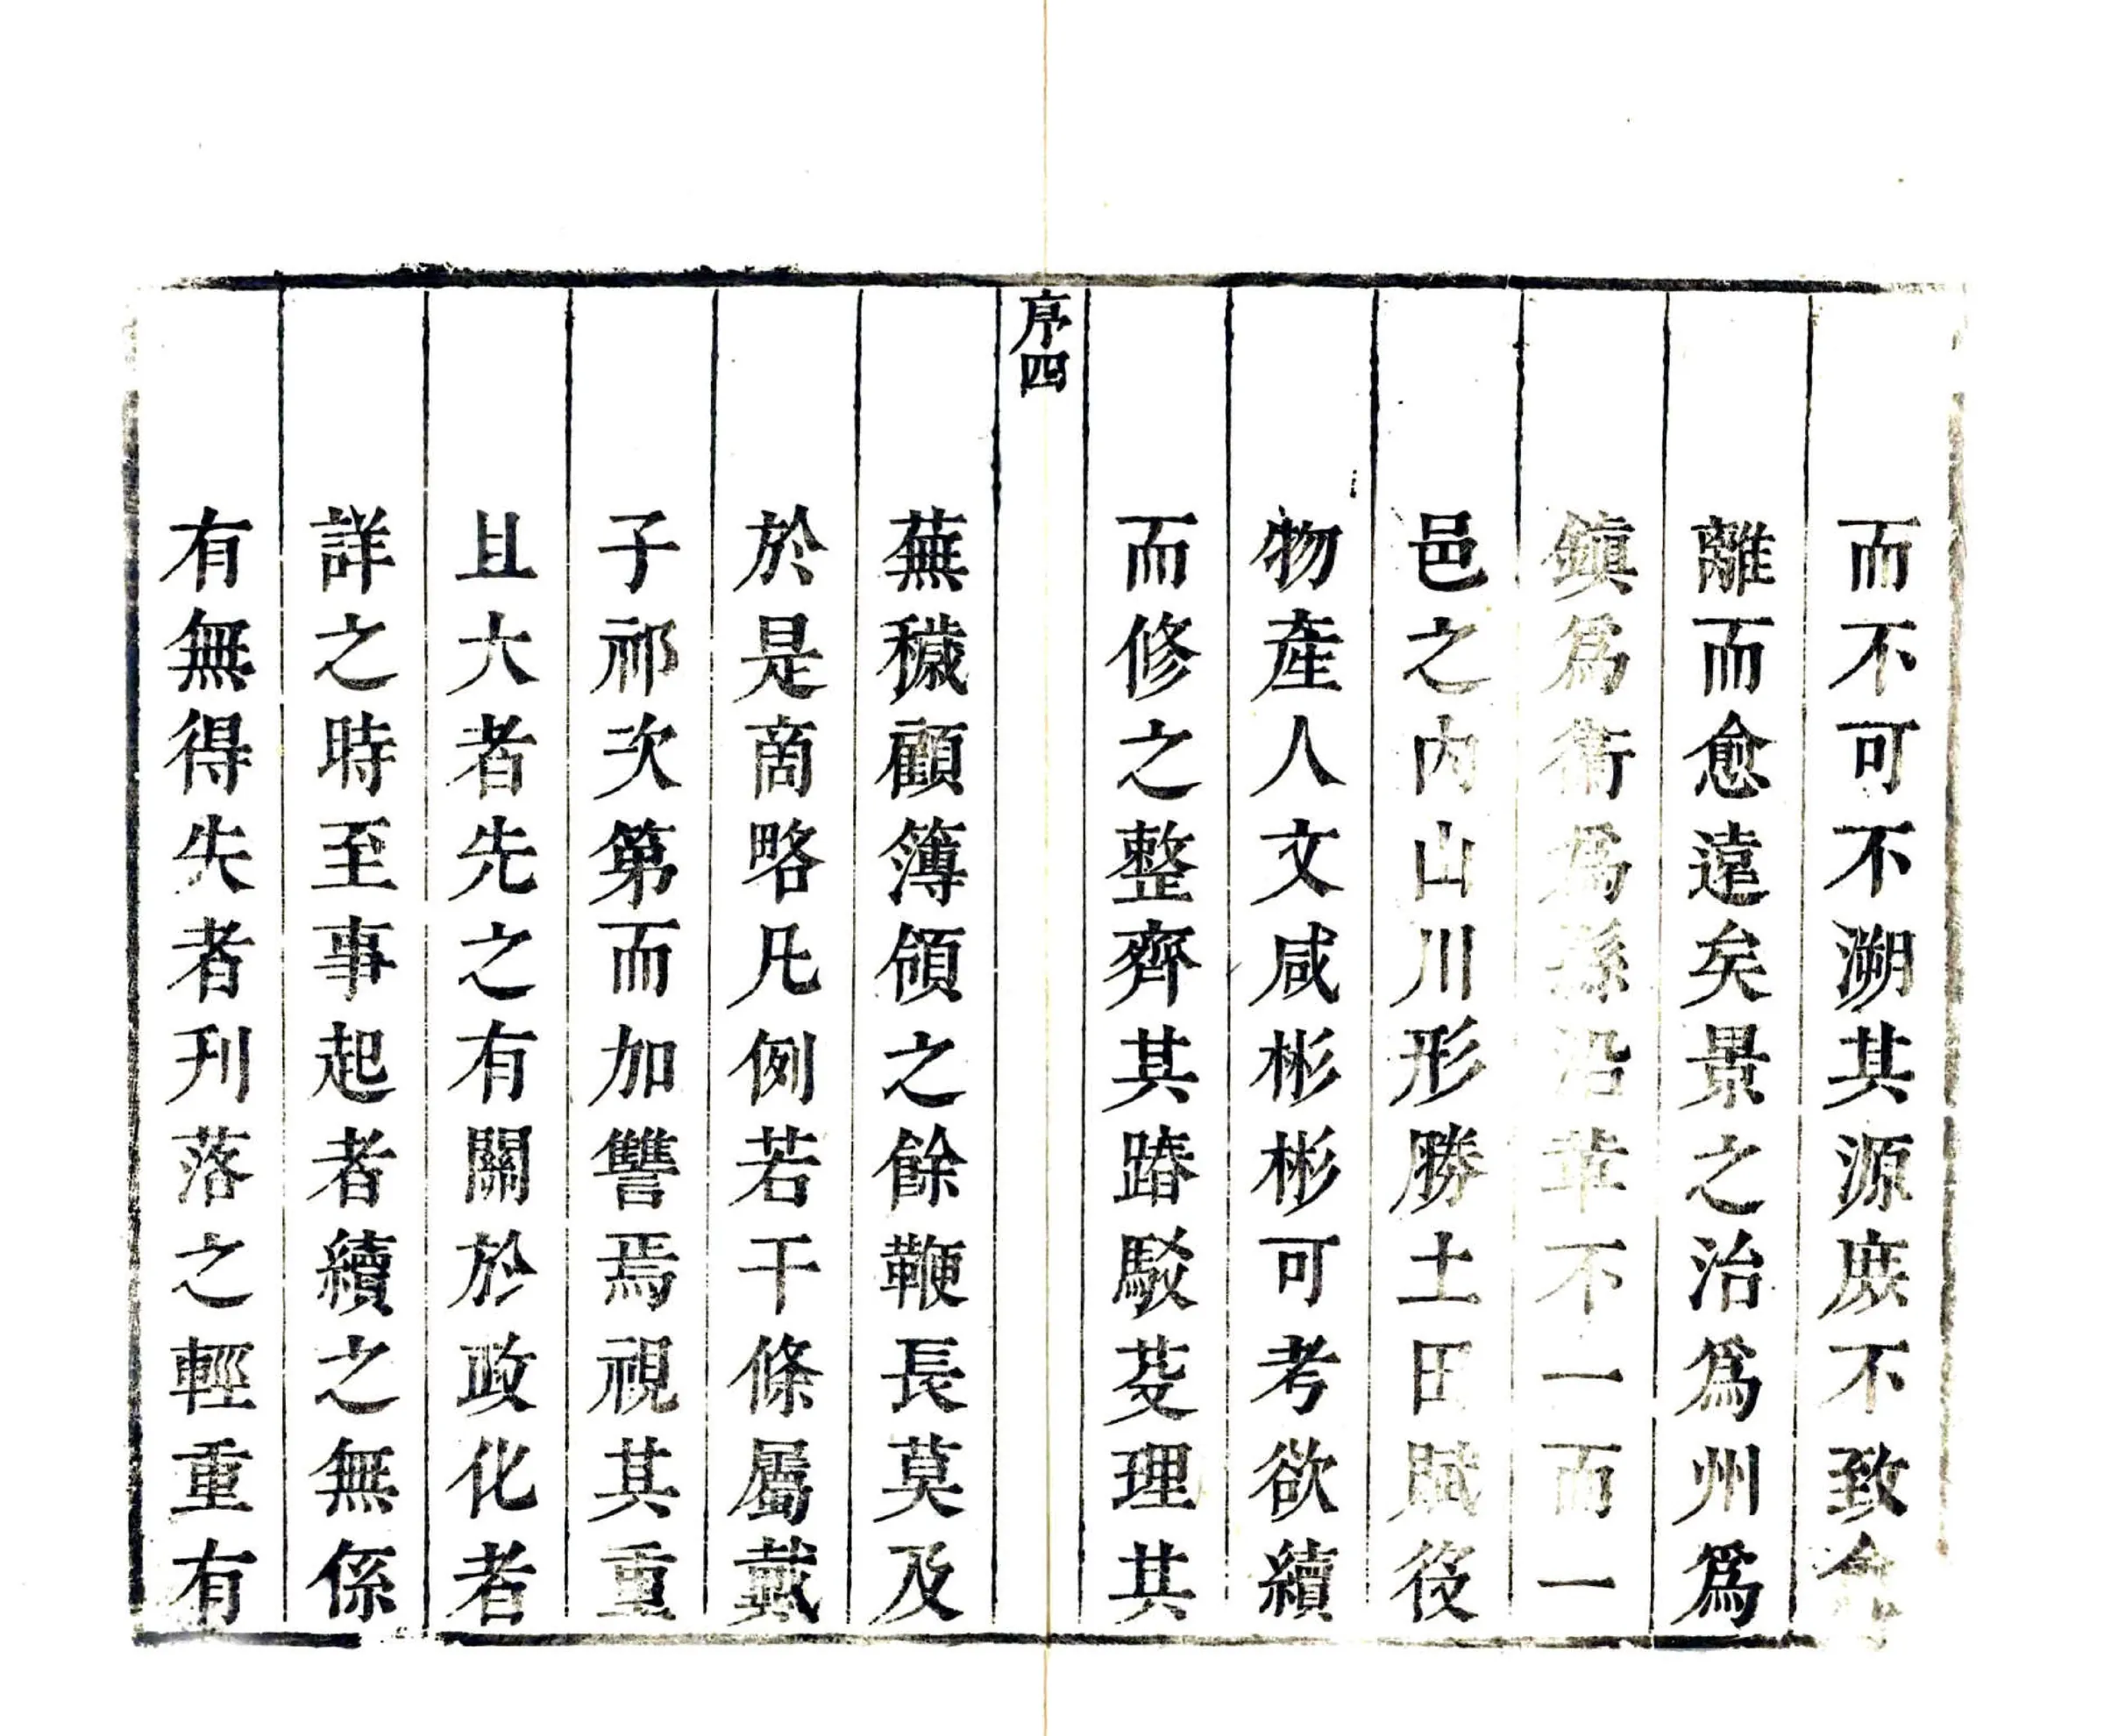 而不可不溯其源庻不致愈
離而愈遠矣景之治爲州爲
鎮爲衛爲縣沿革不一而一
邑之内山川形勝土田賦役
物産人文咸彬彬可考欲續
而修之整齊其踳駁芟理其
序四
蕪穢顧簿領之餘鞭長莫及
於是商略凡例若干條屬戴
子祁次第而加讐焉視其重
且大者先之有關於政化者
詳之時至事起者續之無係
有無得失者刋落之輕重有